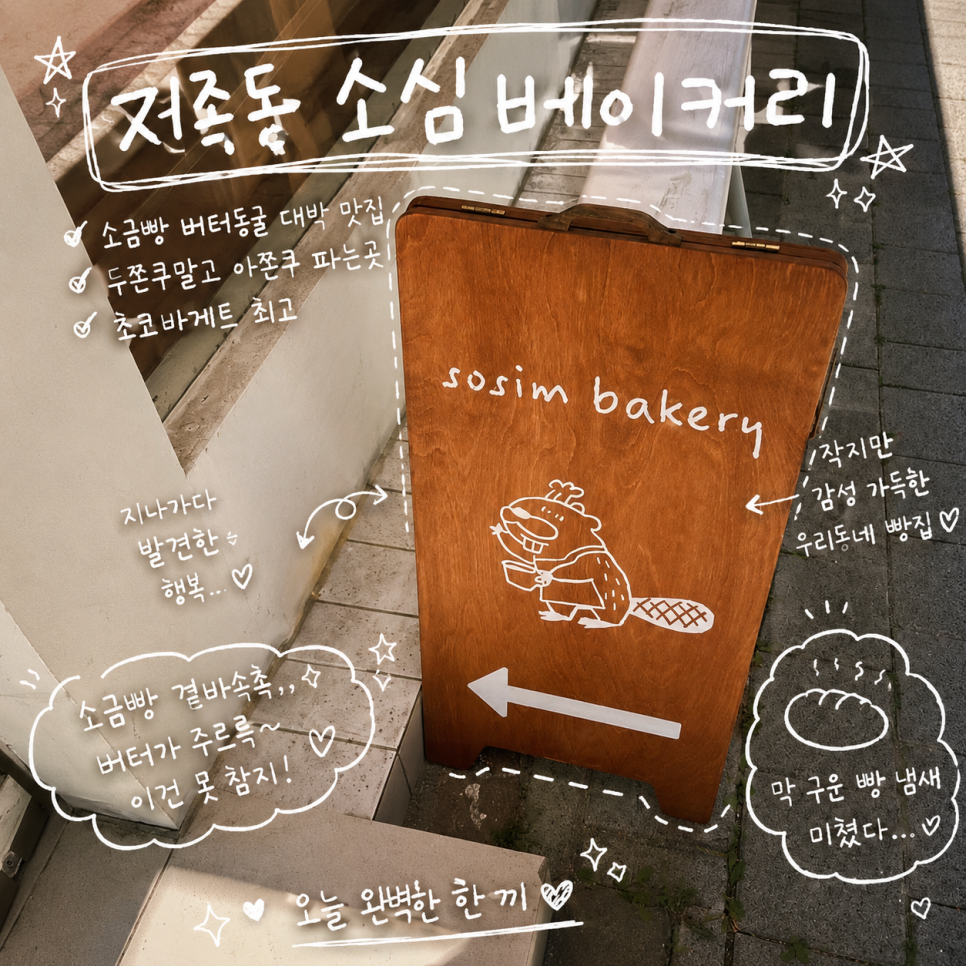 저족동 소심 베이커리
소금빵 버터동굴 대박 맛집
두쫀쿠말고 아쫀쿠 파는곳
초코바게트 최고
sosim bakery
작지만
감성 가득한
우리동네 빵집
지나가다
발견한
행복...
소금빵 곁바속촉,,
버터가 주르륵~
이건 못 참지!
막 구운 빵 냄새
미쳤다...
오늘 완벽한 한 끼